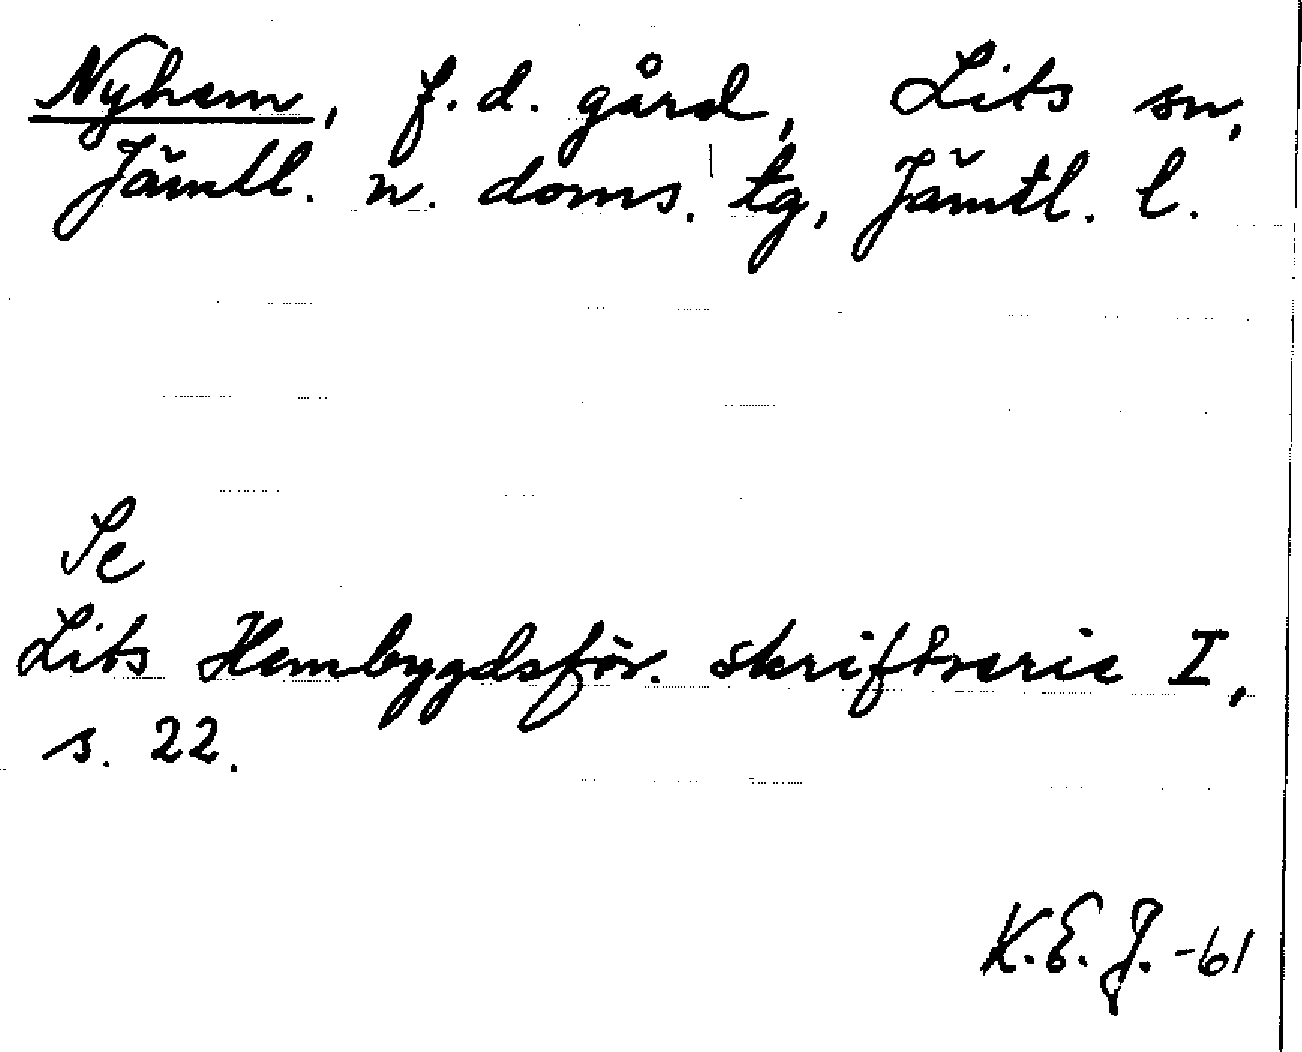 Nyhem, f.d. gård, Lits sn,
Jämtl. n. doms. tg, Jämtl. l.
Se
Lits Hembygdsför. skriftserie I,
s. 22.
K.E.J. -61